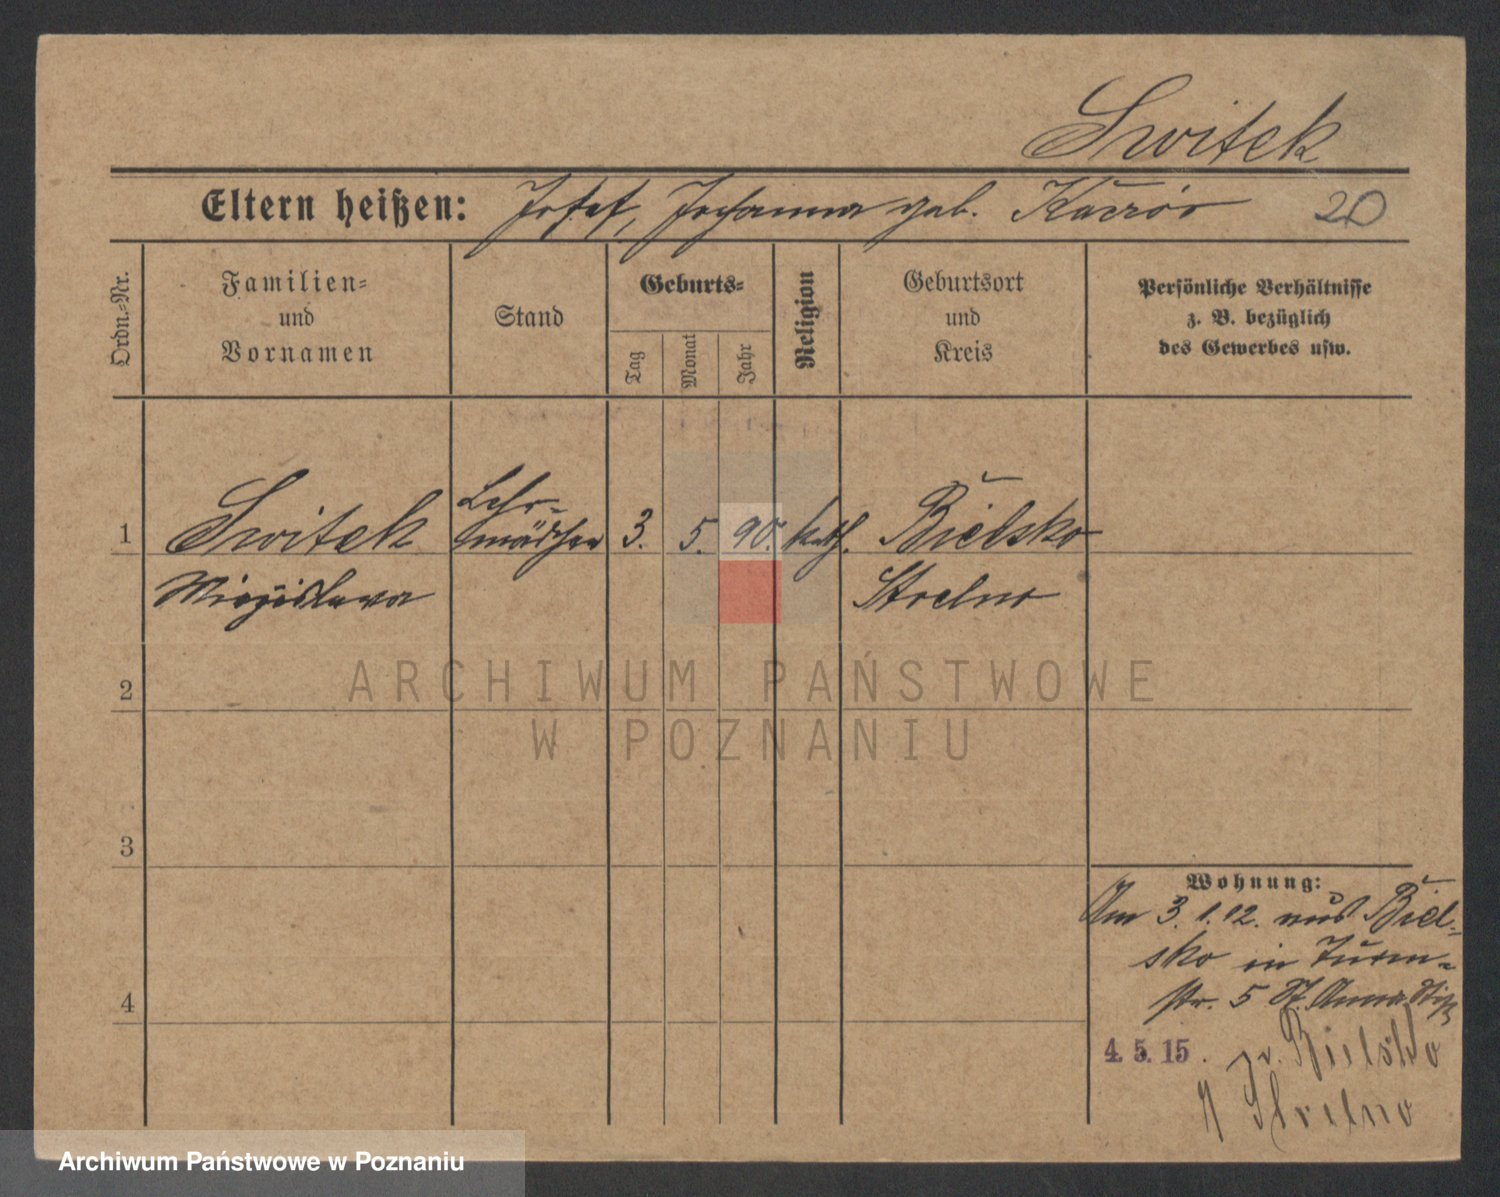 Switek
Eltern heißen: Josef, Johanna geb. Kaczór
20
Ordn.=Nr.
Familien=
und
Vornamen
Stand
Geburts=
Tag
Monat
Jahr
Religion
Geburtsort
und
Kreis
Persönliche Verhältnisse
z. B. bezüglich
des Gewerbes usw.
1
Switek
Lehr-
mädchen
3.
5.
90.
kath.
Bielsko
Strelno
2
3
4
Wohnung:
Am 3.1.12. aus Biel-
sko in Turm-
str. 5 St. Anna Stift
4. 5. 15. zv. Bielsko
Strelno
ARCHIWUM PAŃSTWOWE
W POZNANIU
Archiwum Państwowe w Poznaniu